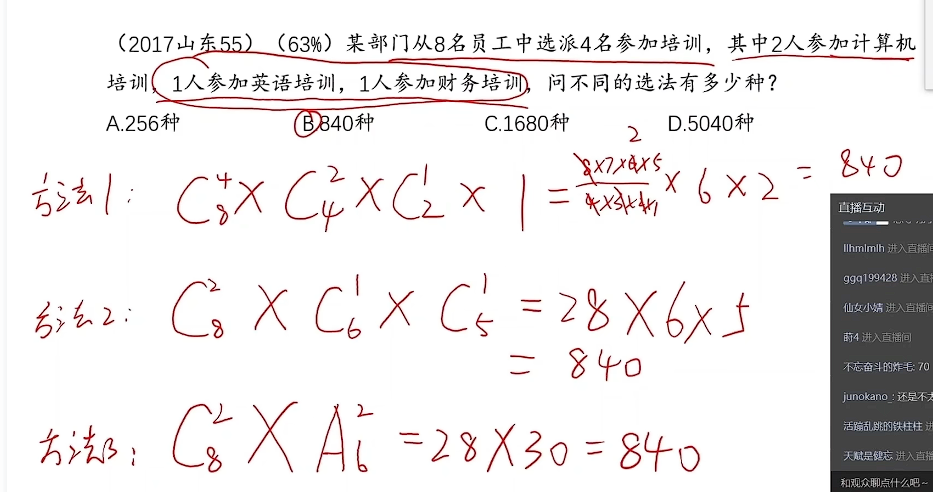 （2017山东55）（63%）某部门从8名员工中选派4名参加培训，其中2人参加计算机
培训，1人参加英语培训，1人参加财务培训，问不同的选法有多少种？
A.256种 B.840种 C.1680种 D.5040种
方法1： C₈⁴ × C₄² × C₂¹ × 1 = (8×7×6×5)/(4×3×2×1) × 6 × 2 = 840
2
方法2： C₈² × C₆¹ × C₅¹ = 28 × 6 × 5
= 840
方法3： C₈² × A₆² = 28 × 30 = 840
直播互动
llhmlmlh 进入直播间
ggq199428 进入直
仙女小婧 进入直播间
莳4 进入直播间
不忘奋斗的炸毛: 70
junokano_: 还是不
活蹦乱跳的铁柱柱 进
天赋是健忘 进入直播
和观众聊点什么吧~